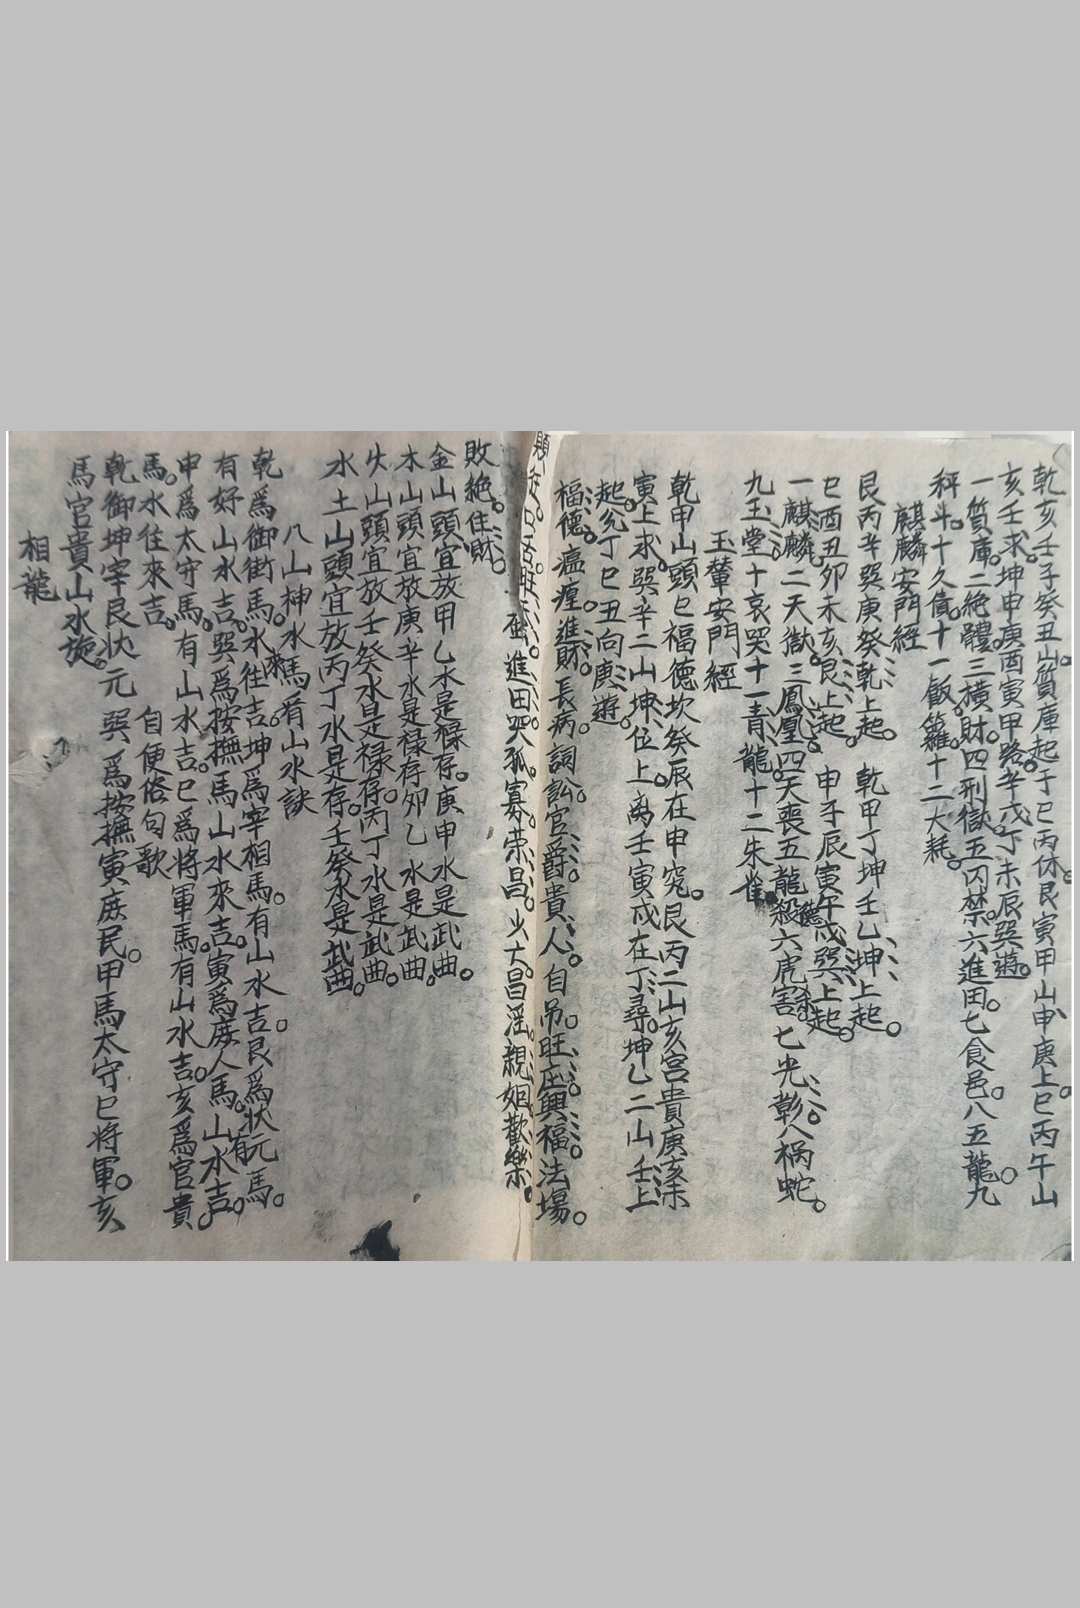 乾亥壬子癸丑山質庫起于巳丙休艮寅甲山申庚上巳丙午山
亥壬求坤申庚酉寅甲路辛戊丁未辰巽遊
一質庫二絶體三橫財四刑獄五丙禁六進田七食邑八五龍九
秤斗十久債十一飯籮十二大耗
麒麟安門經
艮丙辛巽庚癸乾上起 乾甲丁坤壬乙坤上起
巳酉丑卯未亥艮上起 申子辰寅午戌巽上起
一麒麟二天獄三鳳凰四天喪五龍德六虎害七光彰八禍蛇
九玉堂十哀哭十一青龍十二朱雀
玉輦安門經
乾甲山頭巳福德坎癸辰在申究艮丙二山亥宮貴庚亥未
寅上求巽辛二山坤位上离壬寅戌在丁尋坤乙二山壬上
起兌丁巳丑向庚遊
福德瘟瘽進財長病詞訟官爵貴人自吊旺庄興福法場
進田哭孤寡榮昌火大昌淫親姻歡樂
敗絶住財
金山頭宜放甲乙未是祿存庚申水是武曲
木山頭宜放庚辛水是祿存卯乙水是武曲
火山頭宜放壬癸水是禄存丙丁水是武曲
水土山頭宜放丙丁水是存壬癸水是武曲
八山神水馬肴山水訣
乾爲御街馬水來往吉坤爲宰相馬有山水吉艮爲狀元馬
有好山水吉巽爲按撫馬山水來吉寅爲庶人馬有山水吉
申爲太守馬有山水吉巳爲將軍馬有山水吉亥爲官貴
馬水往來吉 自便俗句歌
乾御坤宰艮状元巽爲按撫寅庶民甲馬太守巳将軍亥
馬宮貴山水施
相龍